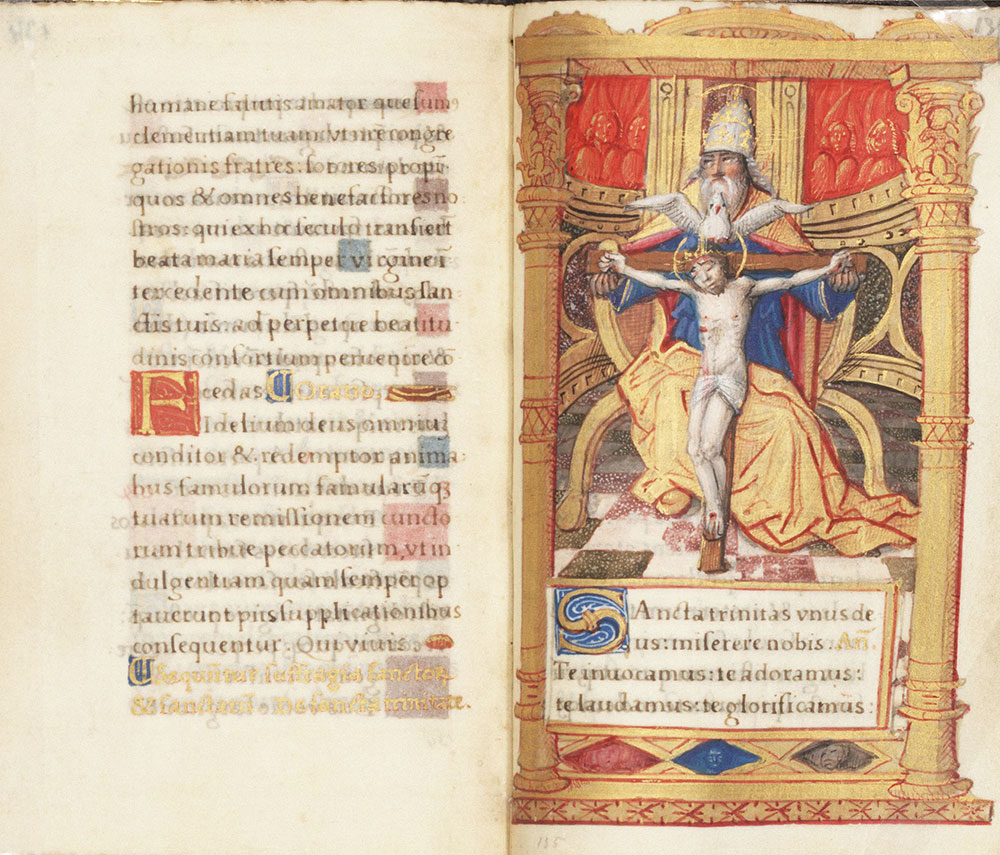 humane salutis amator quesum
clementiam tuam, vt nre congre
gationis fratres: sorores propi
quos & omnes benefactores no
stros: qui ex hoc seculo transiert
beata maria semper virgine in
tercedente cum omnibus san
ctis tuis: ad perpetue beatitu
dinis consortium peruenire co͂
cedas. Oratio
Fidelium deus omnium
conditor & redemptor anima
bus famulorum famularu͂q3
tuarum remissionem cuncto
rum tribue peccatorum, vt in
dulgentiam quam semper op
tauerunt piis supplicationibus
consequentur. Qui viuis.
Sequu͂tur suffragia sanctor
& sanctaru͂. De sancta trinitate.
SAncta trinitas vnus de
us: miserere nobis. An͂.
Te inuocamus: te adoramus:
te laudamus: te glorificamus:
135